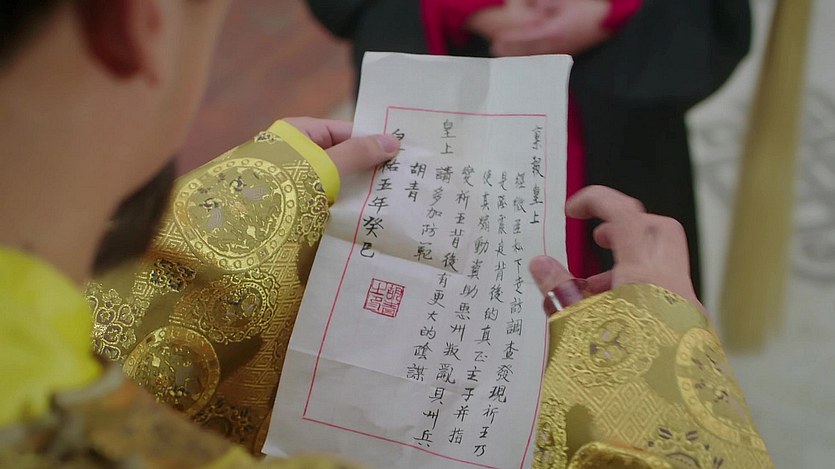 稟報皇上
經微臣私下走訪調查發現祈王乃
是背後的真正主子并指
使其煽動助惠州叛亂貝州兵
變祈王背後有更大的陰謀
皇上請多加防範
胡青
皇祐五年癸巳